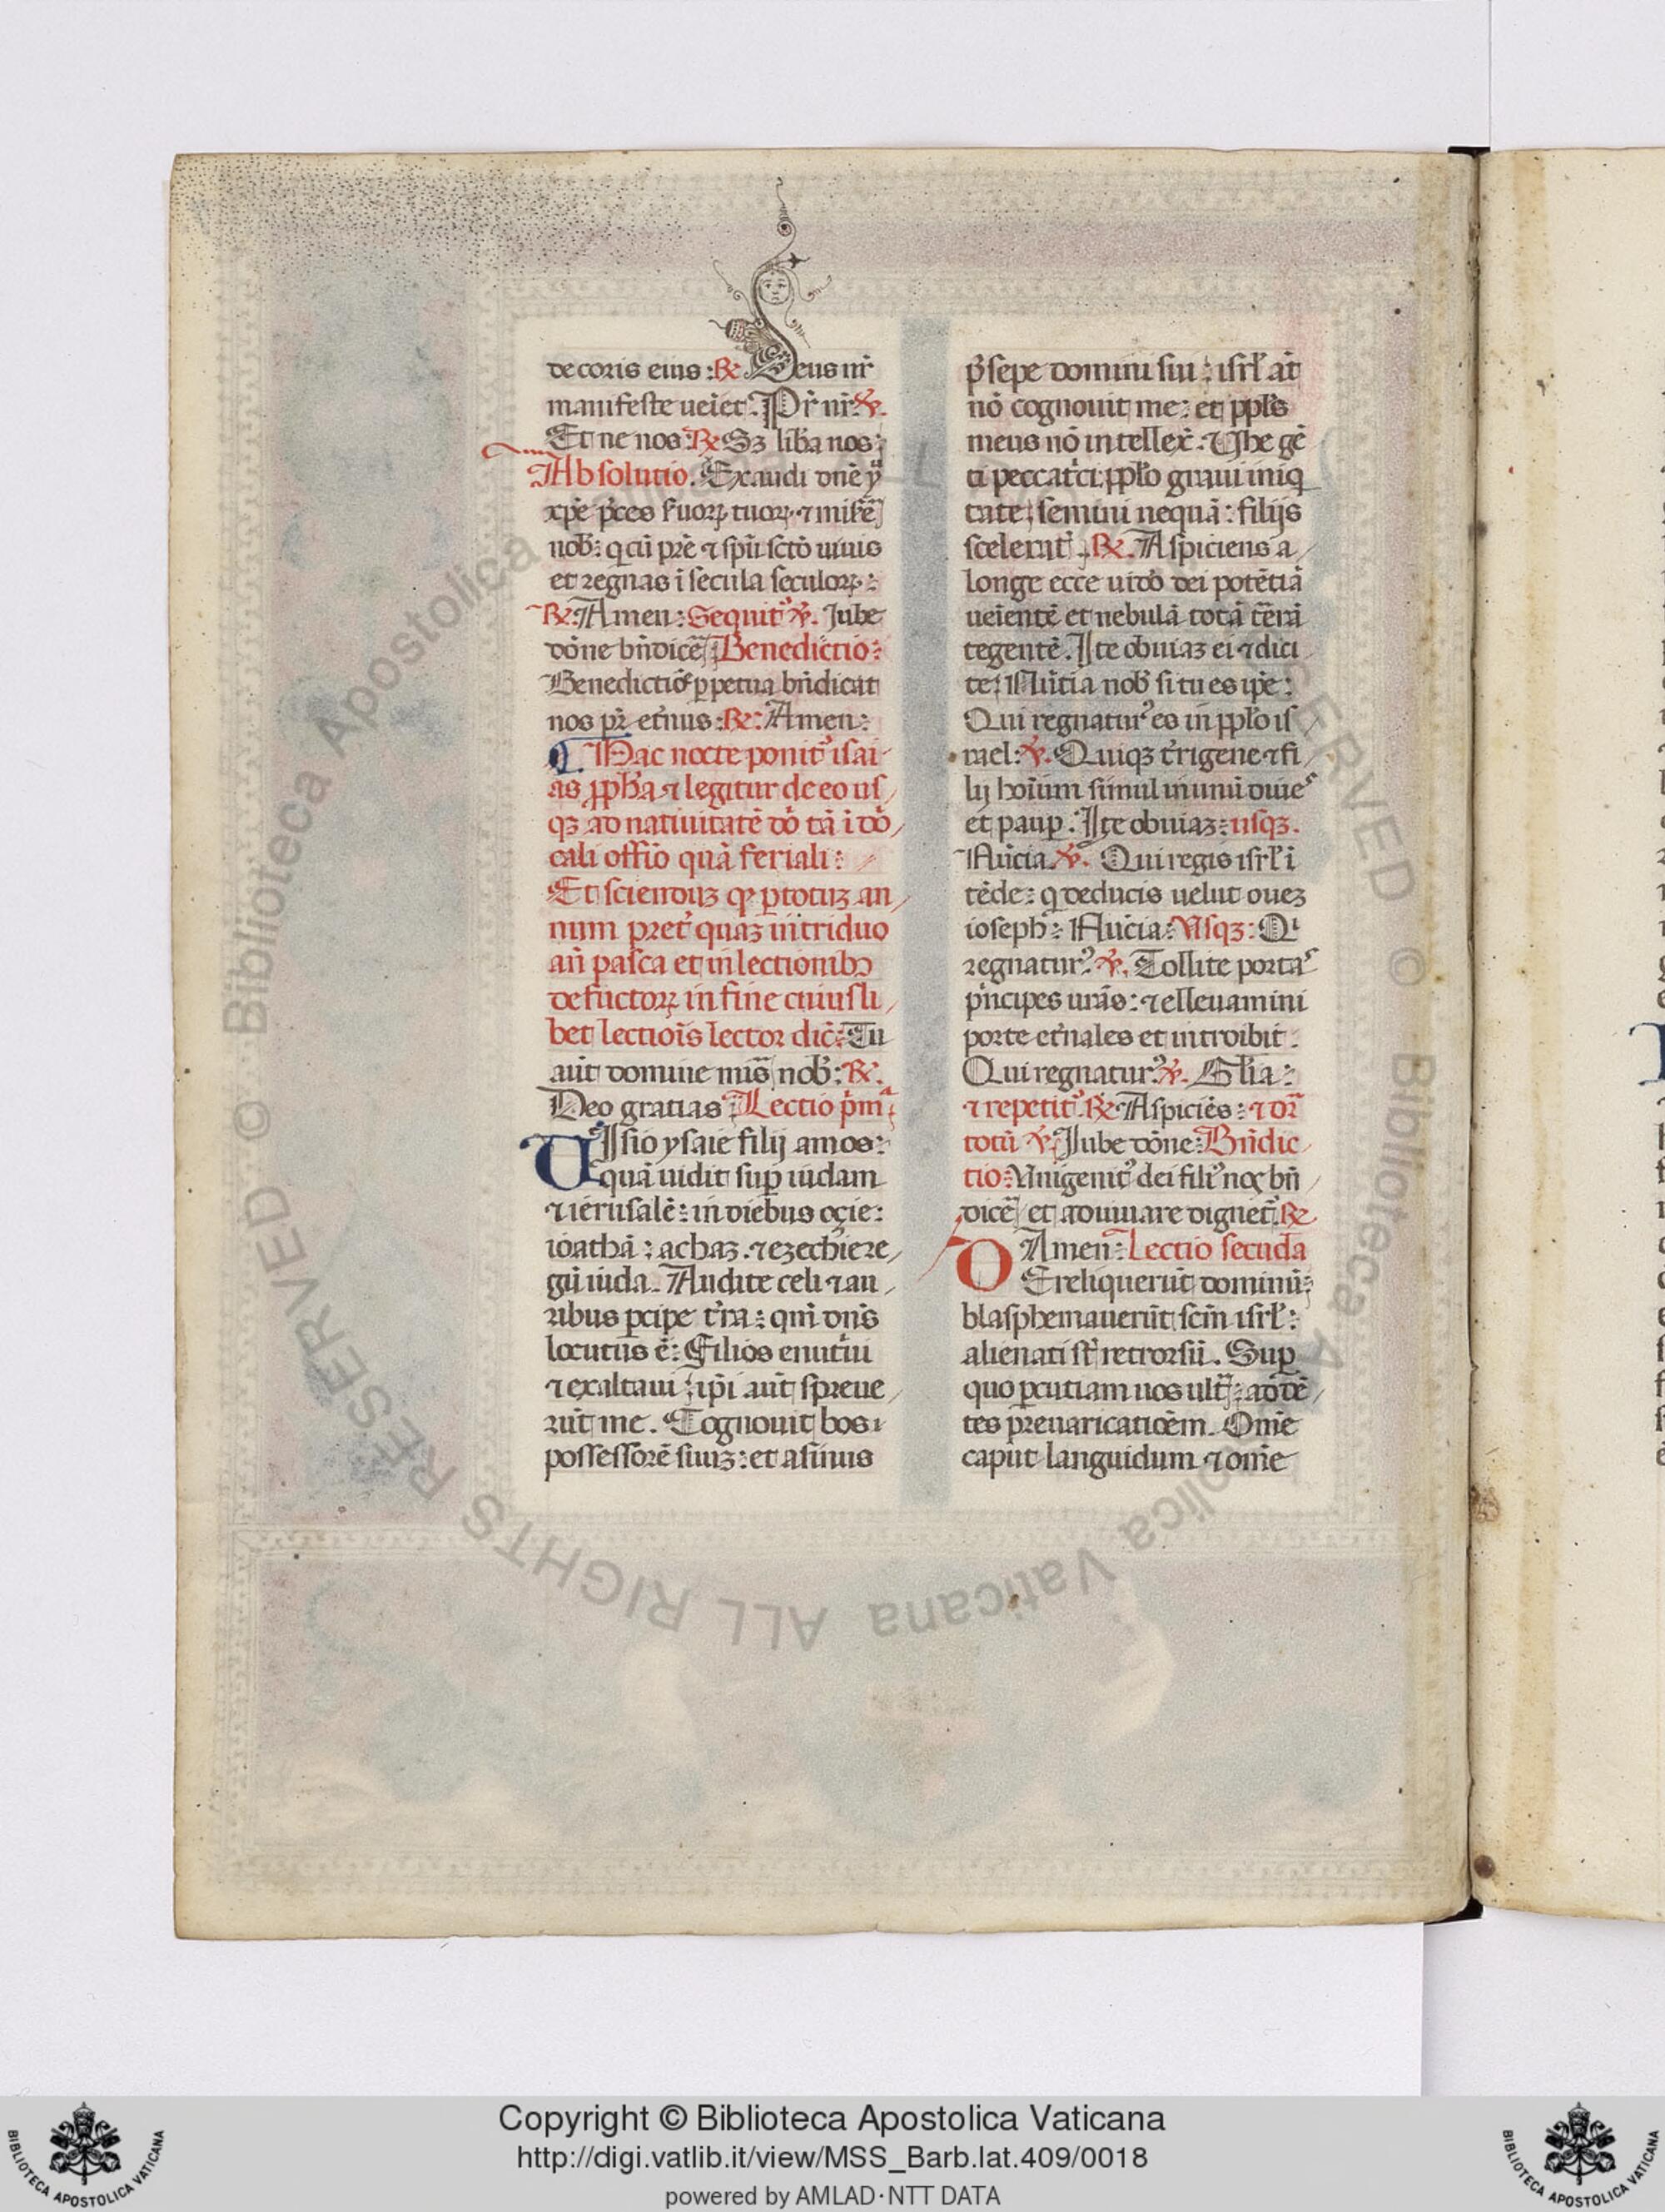 decoris eius : ℟ Deus nr̄
manifeste ueīet. Pr̄ nr̄ ℣.
Et ne nos : ℟ Sꝫ lib̄a nos :
Absolutio. Exaudi dn̄e yͧ
xp̄e p̄ces ẜuoꝝ tuoꝝ ⁊ mis̄ē
nob̄ : q cū pr̄e ⁊ sp̄u sc̄tō uiuis
et regnas ī secula seculoꝝ :
℟ Amen : Sequit̄ ℣. Iube
dōne bn̄dicē : Benedictio :
Benedictiōe ꝑpetua bn̄dicat
nos pr̄ et̄nus : ℟ : Amen :
Hac nocte ponit̄ isai
as ꝓph̄a ⁊ legitur de eo us
qꝫ ad natiuitatē dō tā ī dō
cali offīo quā feriali :
Et sciendūꝫ qꝙ ꝑ totūꝫ an
num p̄ret̄ quaꝫ in triduo
an̄ pasca et in lectionibꝫ
defūctoꝝ in fine cuiusli
bet lectiōis lector dic̄ : Tu
aūt domine mis̄ nob̄ : ℟.
Deo gratias : Lectio p̄mᵃ
UIsio ysaie filij amos :
quā uidit suꝑ iudam
⁊ ierusalē : in diebus oçie :
ioathā : achaz . ⁊ ezechie re
gū iuda. Audite celi ⁊ au
ribus ꝑcipe t̄ra : qm̄ dn̄s
locutus ē : Filios enut̄ui
⁊ exaltaui : ip̄i aūt spreue
rūt me. Cognouit bos
possessorē suūꝫ : et asinus
p̄sepe domini sui : isrl̄ at̄
nō cognouit me : et ppl̄s
meus nō intellex̄ : Uhe gē
ti peccat̄ci : ppl̄o graui iniq
tate : semini nequā : filijs
scelerat̄ . ℟. Aspiciens a
longe ecce uideō dei potētiā
ueientē et nebulā totā t̄erā
tegentē. Ite obuiaꝫ ei ⁊ dici
te : Nūtia nob̄ si tu es ip̄e :
Qui regnaturꝰ es in ppl̄o is
rael : ℣. Quiqꝫ t̄rigene ⁊ fi
lij hoīum simul in unū diues
et pauꝑ . Ite obuiaꝫ : usqꝫ.
Nūcia. ℣. Qui regis isrl̄ ī
tēde : q deducis uelut ouez
ioseph : Nūcia : Usqꝫ : Qⁱ
regnaturꝰ. ℣. Tollite portas
p̄ncipes ur̄as : ⁊ elleuamini
porte et̄nales et introibit :
Qui regnaturꝰ. ℣. Gl̄ia :
⁊ repetit̄ ℟. Aspiciēs : ⁊ dr̄
totū ℣. Iube dōne : Bn̄dic
tio : Unigenitꝰ dei filiꝰ nos bn̄
dicē : et adiuuare dignet̄. ℟
Amen : Lectio secūda
DEreliquerūt dominū :
blasphemauerūt sc̄m isrl̄ :
alienati st̄ retrorsū. Suꝑ
quo ꝑcutiam uos ult̄ : addē
tes p̄reuaricatiōem. Om̄e
caput languidum ⁊ om̄e
© Biblioteca Apostolica Vaticana ALL RIGHTS RESERVED
Copyright © Biblioteca Apostolica Vaticana
http://digi.vatlib.it/view/MSS_Barb.lat.409/0018
powered by AMLAD·NTT DATA
BIBLIOTECA APOSTOLICA VATICANA
BIBLIOTECA APOSTOLICA VATICANA